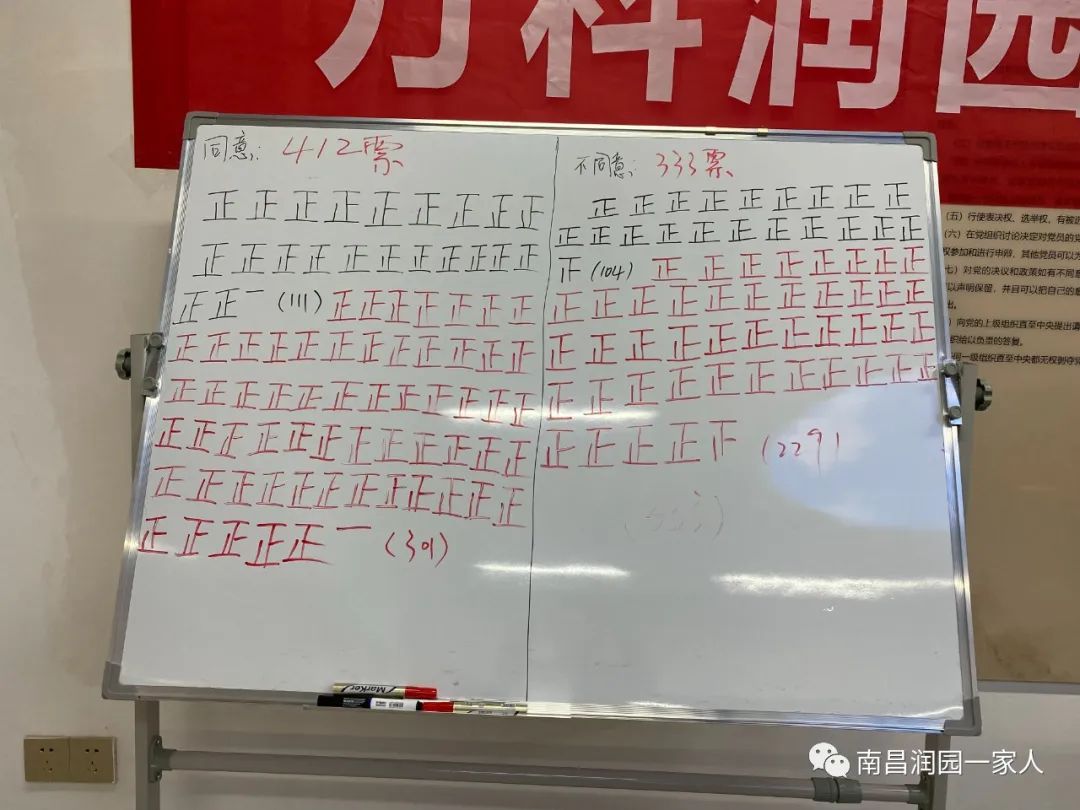 万科润园
同意: 412票
正正正正正正正正正
正正正正正正正正正正正
正正一 (111) 正正正正正正正
正正正正正正正正正正正正
正正正正正正正正正正正正
正正正正正正正正正正正正
正正正正正正正正正正正正
正正正正正一 (301)
不同意: 333票
正正正正正正正正正
正正正正正正正正正正正
下 (104) 正正正正正正正正
正正正正正正正正正正正
正正正正正正正正正正正
正正正正正正正正正正正
正正正正下 (229)
(五) 行使表决权、选举权、有被选
(六) 在党组织讨论决定对党员的党
权参加和进行申辩,其他党员可以为
七) 对党的决议和政策如有不同意
以声明保留,并且可以把自己的意
出。
) 向党的上级组织直至中央提出请
织给以负责的答复。
何一级组织直至中央都无权剥夺党
Marker
南昌润园一家人